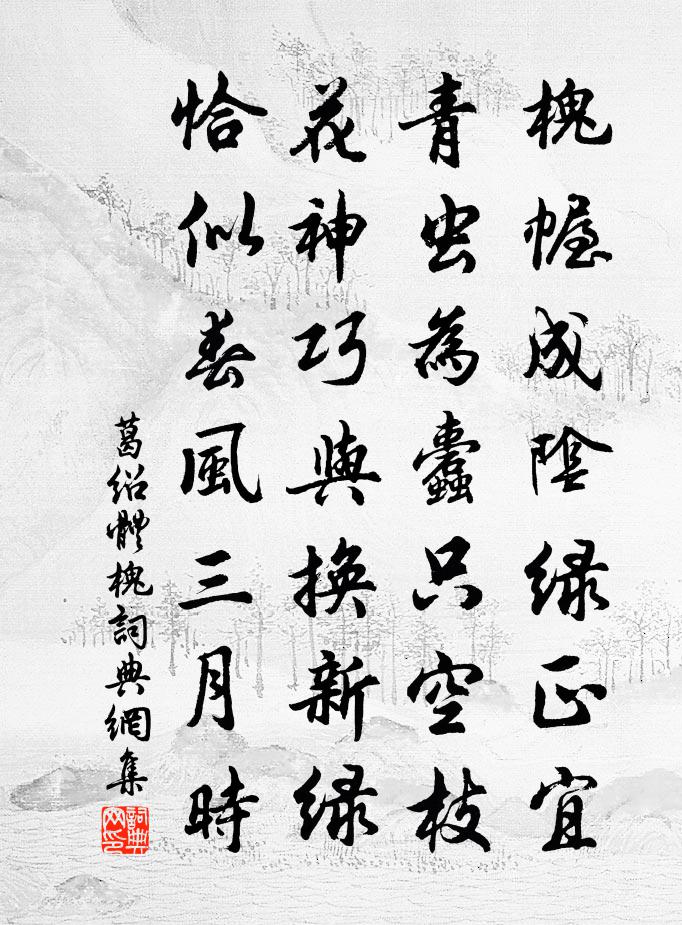 槐幄成陰緑正宜
青虫為蠹只空枝
花神巧與換新緑
恰似春風三月時
葛紹體槐詞典網集
詞典
网印